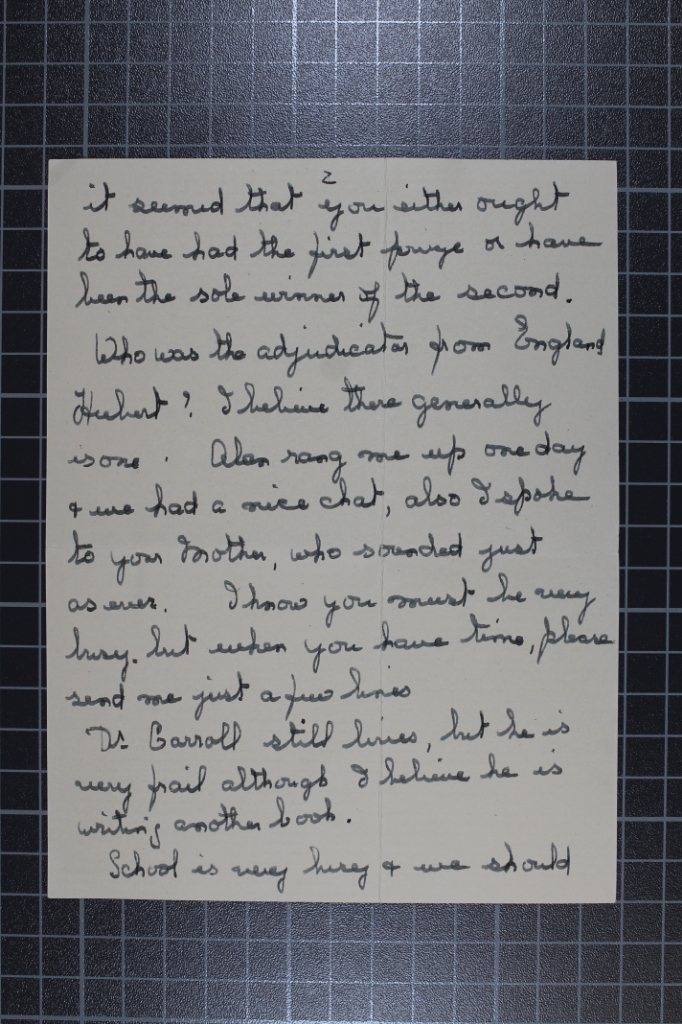 2
it seemed that you either ought
to have had the first prize or have
been the sole winner of the second.
Who was the adjudicator from England
Hubert? I believe there generally
is one. Alan rang me up one day
& we had a nice chat, also I spoke
to your Mother, who sounded just
as ever. I know you must be very
busy. but when you have time, please
send me just a few lines
Dr Carroll still lives, but he is
very frail although I believe he is
writing another book.
School is very busy & we should